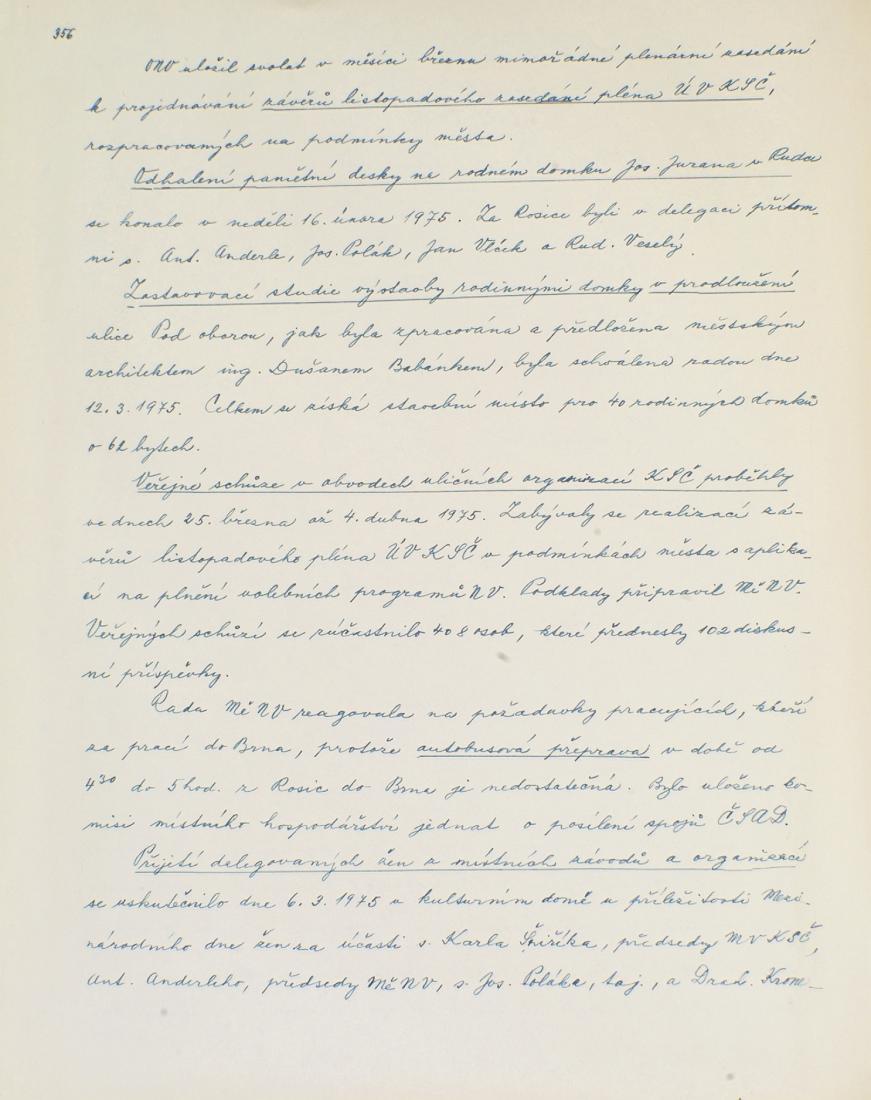 356
ONV uložil svolat v měsíci březnu mimořádné plenární zasedání
k projednávání závěrů listopadového zasedání pléna ÚV KSČ,
rozpracovaných na podmínky města.
Odhalení pamětní desky na rodném domku Jos. Jurana v Rudce
se konalo v neděli 16. února 1975. Za Rosice byli v delegaci přítom-
ni s. Ant. Anderle, Jos. Polák, Jan Vlček a Rud. Veselý.
Zastavovací studie výstavby rodinnými domky v prodloužení
ulice Pod oborou, jak byla zpracována a předložena městským
architektem ing. Dušanem Babánkem, byla schválena radou dne
12. 3. 1975. Celkem se získá stavební místo pro 40 rodinných domků
o 62 bytech.
Veřejné schůze v obvodech uličních organizací KSČ proběhly
ve dnech 25. března až 4. dubna 1975. Zabývaly se realizací zá-
věrů listopadového pléna ÚV KSČ v podmínkách města s aplika-
cí na plnění volebních programů NV. Podklady připravil MěNV.
Veřejných schůzí se zúčastnilo 408 osob, které přednesly 102 diskus-
ní příspěvky.
Rada MěNV reagovala na požadavky pracujících, kteří
za prací do Brna, protože autobusová přeprava v době od
4³⁰ do 5 hod. z Rosic do Brna je nedostatečná. Bylo uloženo ko-
misi místního hospodářství jednat o posílení spojů ČSAD.
Přijetí delegovaných žen z místních závodů a organizací
se uskutečnilo dne 6. 3. 1975 v kulturním domě u příležitosti Mezi-
národního dne žen za účasti s. Karla Šniříka, předsedy MV KSČ,
Ant. Anderleho, předsedy MěNV, s. Jos. Poláka, taj., a Drah. Krom-